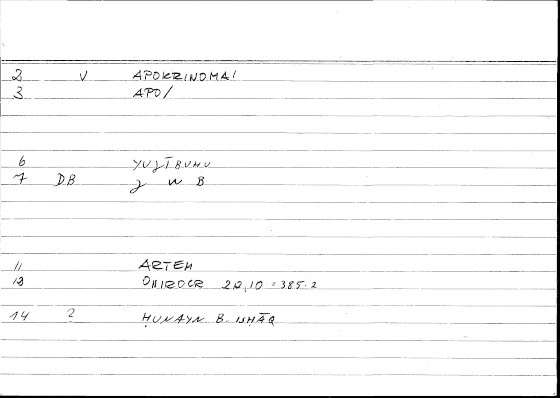 2 V APOKRINOMAI
3 APO/
6 YUǦĪBUHU
7 DB ǧ W B
11 ARTEM
12 ONIROCR 20,10 = 385.2
14 ? ḤUNAYN B. ISḤĀQ